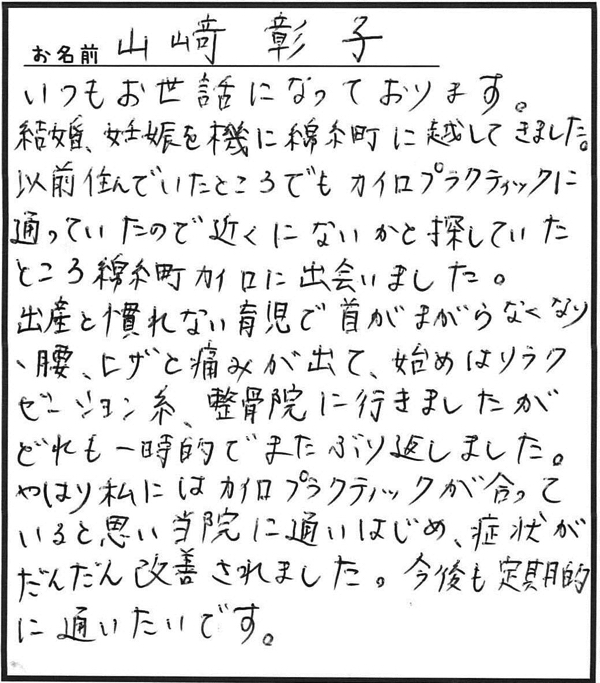 お名前 山﨑 彰子
いつもお世話になっております。
結婚、妊娠を機に綿糸町に越してきました。
以前住んでいたところでもカイロプラクティックに
通っていたので近くにないかと探していた
ところ綿糸町カイロに出会いました。
出産と慣れない育児で首がまがらなくなり
、腰、ヒザと痛みが出て、始めはリラク
ゼーション系、整骨院に行きましたが
どれも一時的でまたぶり返しました。
やはり私にはカイロプラクティックが合って
いると思い当院に通いはじめ、症状が
だんだん改善されました。今後も定期的
に通いたいです。